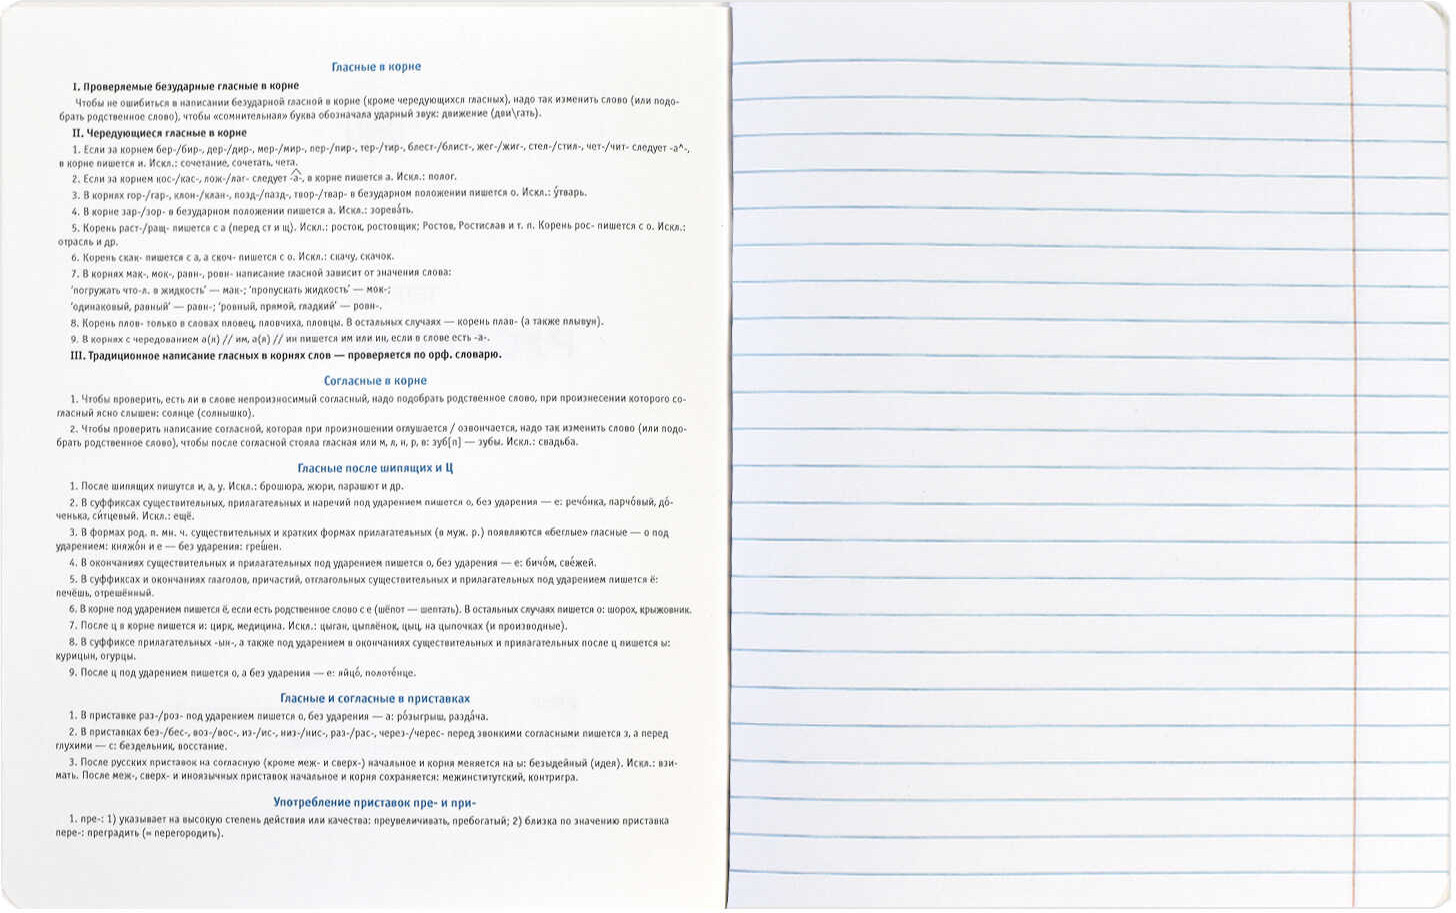 Гласные в корне
I. Проверяемые безударные гласные в корне
Чтобы не ошибиться в написании безударной гласной в корне (кроме чередующихся гласных), надо так изменить слово (или подо-
брать родственное слово), чтобы «сомнительная» буква обозначала ударный звук: движение (дви\гать).
II. Чередующиеся гласные в корне
1. Если за корнем бер-/бир-, дер-/дир-, мер-/мир-, пер-/пир-, тер-/тир-, блест-/блист-, жег-/жиг-, стел-/стил-, чет-/чит- следует -а^-,
в корне пишется и. Искл.: сочетание, сочетать, чета.
2. Если за корнем кос-/кас-, лож-/лаг- следует -а-, в корне пишется а. Искл.: полог.
3. В корнях гор-/гар-, клон-/клан-, позд-/пазд-, твор-/твар- в безударном положении пишется о. Искл.: у́тварь.
4. В корне зар-/зор- в безударном положении пишется а. Искл.: зорева́ть.
5. Корень раст-/ращ- пишется с а (перед ст и щ). Искл.: росток, ростовщик; Ростов, Ростислав и т. п. Корень рос- пишется с о. Искл.:
отрасль и др.
6. Корень скак- пишется с а, а скоч- пишется с о. Искл.: скачу, скачок.
7. В корнях мак-, мок-, равн-, ровн- написание гласной зависит от значения слова:
'погружать что-л. в жидкость' — мак-; 'пропускать жидкость' — мок-;
'одинаковый, равный' — равн-; 'ровный, прямой, гладкий' — ровн-.
8. Корень плов- только в словах пловец, пловчиха, пловцы. В остальных случаях — корень плав- (а также плывун).
9. В корнях с чередованием а(я) // им, а(я) // ин пишется им или ин, если в слове есть -а-.
III. Традиционное написание гласных в корнях слов — проверяется по орф. словарю.
Согласные в корне
1. Чтобы проверить, есть ли в слове непроизносимый согласный, надо подобрать родственное слово, при произнесении которого со-
гласный ясно слышен: солнце (солнышко).
2. Чтобы проверить написание согласной, которая при произношении оглушается / озвончается, надо так изменить слово (или подо-
брать родственное слово), чтобы после согласной стояла гласная или м, л, н, р, в: зуб[п] — зубы. Искл.: свадьба.
Гласные после шипящих и Ц
1. После шипящих пишутся и, а, у. Искл.: брошюра, жюри, парашют и др.
2. В суффиксах существительных, прилагательных и наречий под ударением пишется о, без ударения — е: речо́нка, парчо́вый, до́-
ченька, си́тцевый. Искл.: ещё.
3. В формах род. п. мн. ч. существительных и кратких формах прилагательных (в муж. р.) появляются «беглые» гласные — о под
ударением: княжо́н и е — без ударения: гре́шен.
4. В окончаниях существительных и прилагательных под ударением пишется о, без ударения — е: бичо́м, све́жей.
5. В суффиксах и окончаниях глаголов, причастий, отглагольных существительных и прилагательных под ударением пишется ё:
печёшь, отрешённый.
6. В корне под ударением пишется ё, если есть родственное слово с е (шёпот — шептать). В остальных случаях пишется о: шорох, крыжовник.
7. После ц в корне пишется и: цирк, медицина. Искл.: цыган, цыплёнок, цыц, на цыпочках (и производные).
8. В суффиксе прилагательных -ын-, а также под ударением в окончаниях существительных и прилагательных после ц пишется ы:
курицын, огурцы.
9. После ц под ударением пишется о, а без ударения — е: яйцо́, полоте́нце.
Гласные и согласные в приставках
1. В приставке раз-/роз- под ударением пишется о, без ударения — а: ро́зыгрыш, разда́ча.
2. В приставках без-/бес-, воз-/вос-, из-/ис-, низ-/нис-, раз-/рас-, через-/черес- перед звонкими согласными пишется з, а перед
глухими — с: бездельник, восстание.
3. После русских приставок на согласную (кроме меж- и сверх-) начальное и корня меняется на ы: безыдейный (идея). Искл.: взи-
мать. После меж-, сверх- и иноязычных приставок начальное и корня сохраняется: межинститутский, контригра.
Употребление приставок пре- и при-
1. пре-: 1) указывает на высокую степень действия или качества: преувеличивать, пребогатый; 2) близка по значению приставка
пере-: преградить (= перегородить).